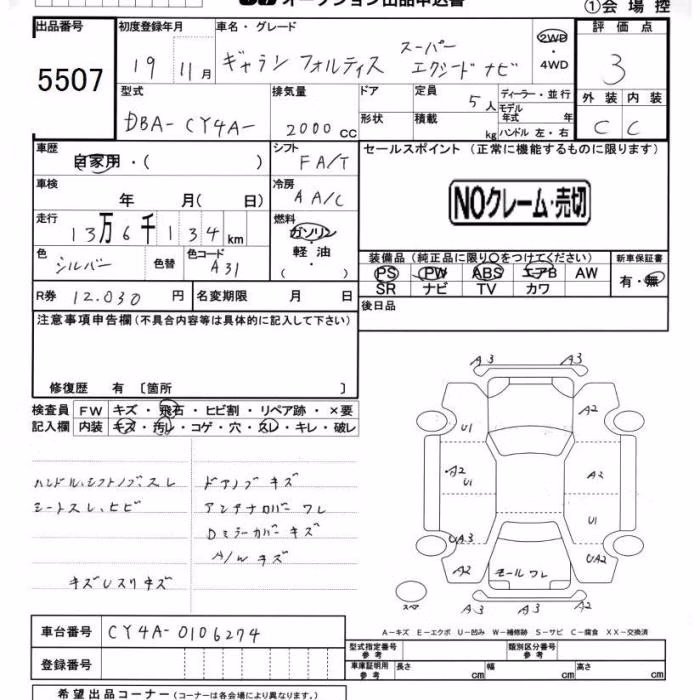 オークション出品申込書
①会場控
出品番号
5507
初度登録年月
19 11月
車名・グレード
ギャラン フォルティス スーパー エクシードナビ
2WD・4WD
評価点
3
外装 内装
C C
型式
DBA-CY4A-
排気量
2000cc
ドア
形状
定員
5人
積載
kg
ディーラー・並行
モデル年式 年
ハンドル 左・右
車歴
自家用・( )
シフト
FA/T
セールスポイント (正常に機能するものに限ります)
NOクレーム・売切
車検
年 月( 日)
冷房
AA/C
走行
13万6千134km
燃料
ガソリン・軽油・( )
色
シルバー
色替
色コード
A31
装備品 (純正品に限り○をつけてください)
PS PW ABS エアB AW
SR ナビ TV カワ
新車保証書
有・無
R券 12.030円
名変期限 月 日
後日品
注意事項申告欄 (不具合内容等は具体的に記入して下さい)
修復歴 有 〔箇所 〕
検査員記入欄
FW キズ・飛石・ヒビ割・リペア跡・×要
内装 キズ・汚レ・コゲ・穴・スレ・キレ・破レ
ハンドル、シフトノブ、スレ
シートスレ、ヒビ
キズUスリキズ
ドアノブ キズ
アンテナカバー ワレ
Dミラーカバー キズ
A/W キズ
A3 A3
A2
U1
A2
U1
A2
U1
UA3
UA2
A2
モールワレ
A2
A3 A3
スペア
A-キズ E-エクボ U-凹み W-補修跡 S-サビ C-腐食 XX-交換済
車台番号
CY4A-0106274
登録番号
型式指定番号 参考
類別区分番号 参考
車庫証明用 参考
長さ cm
幅 cm
高さ cm
希望出品コーナー (コーナーは各会場により異なります。)